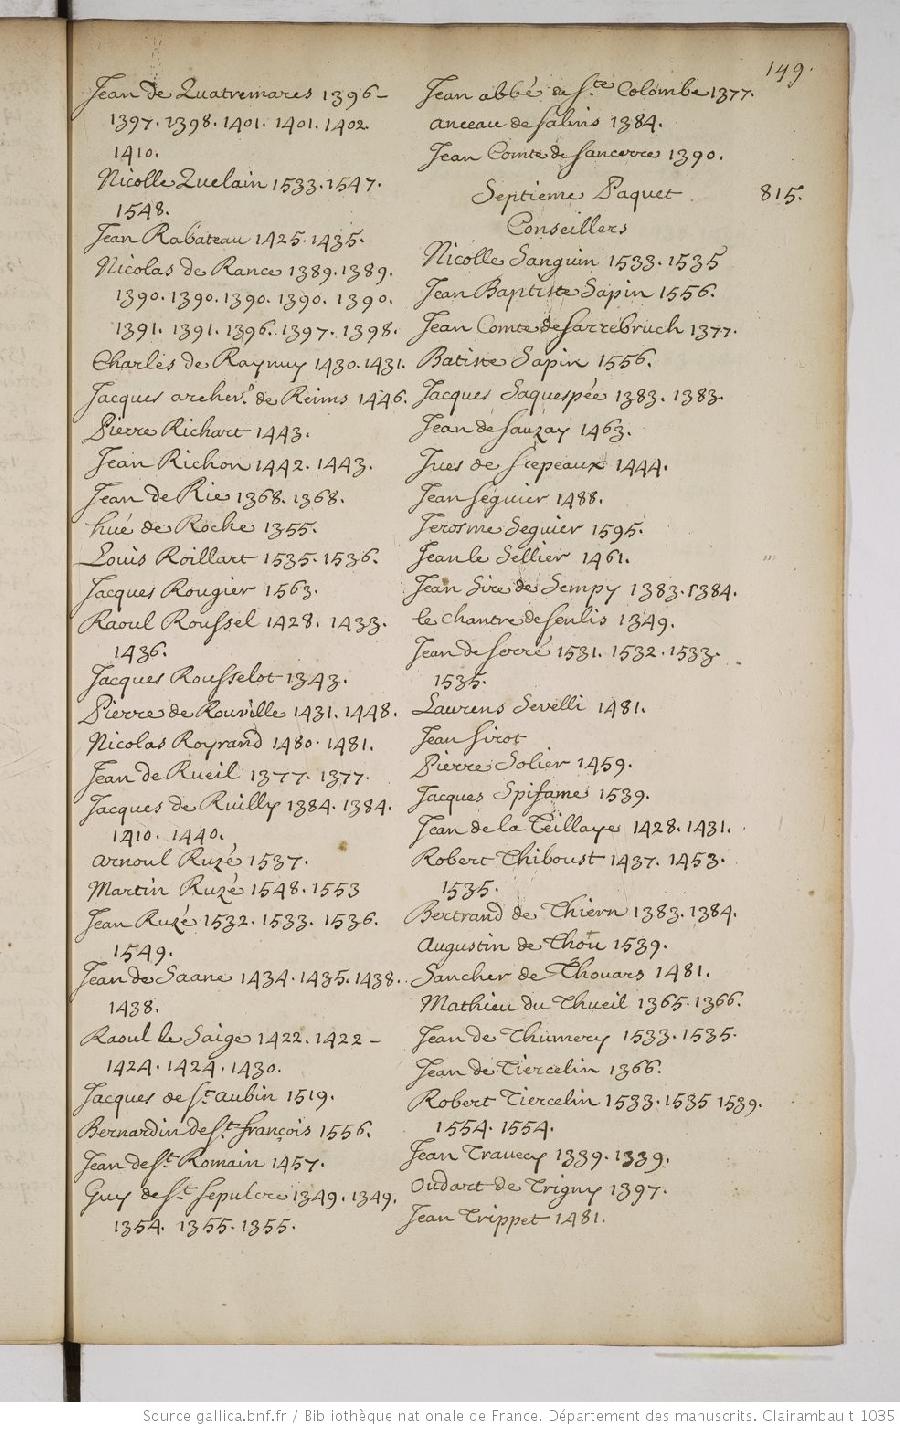 149.
Jean de Quatremares 1396-
1397. 1398. 1401. 1401. 1402.
1410.
Nicolle Quelain 1533. 1547.
1548.
Jean Rabateau 1425. 1435.
Nicolas de Rance 1389. 1389.
1390. 1390. 1390. 1390. 1390.
1391. 1391. 1396. 1397. 1398.
Charles de Raynuy 1430. 1431.
Jacques archer. de Reims 1446.
Pierre Richart 1443.
Jean Richon 1442. 1443.
Jean de Rie 1368. 1368.
hué de Roche 1355.
Louis Roillart 1535. 1536.
Jacques Rougier 1563.
Raoul Roussel 1428. 1433.
1436.
Jacques Rousselot 1343.
Pierre de Rouville 1431. 1448.
Nicolas Royrand 1480. 1481.
Jean de Rueil 1377. 1377.
Jacques de Ruilly 1384. 1384.
1410. 1440.
arnoul Ruzé 1537.
Martin Ruzé 1548. 1553
Jean Ruzé 1532. 1533. 1536.
1549.
Jean de Saane 1434. 1435. 1438.
1438.
Raoul le Saige 1422. 1422-
1424. 1424. 1430.
Jacques de St. aubin 1519.
Bernardin de St. françois 1556.
Jean de St. Romain 1457.
Guy de St. Sepulcre 1349. 1349.
1354. 1355. 1355.
Jean abbé de Ste Colombe 1377.
anceau de Salins 1384.
Jean Comte de Sancerre 1390.
Septieme Paquet 815.
Conseillers
Nicolle Sanguin 1533. 1535
Jean Baptiste Sapin 1556.
Jean Comte de Sarrebruch 1377.
Batiste Sapin 1556.
Jacques Saquespée 1383. 1383.
Jean de Sauzay 1463.
Jues de Scepeaux 1444.
Jean Séguier 1488.
Jerosme Seguier 1595.
Jean le Sellier 1461.
Jean Sire de Sempy 1383. 1384.
le chantre de Senlis 1349.
Jean de Serré 1531. 1532. 1533.
1535.
Laurens Sevelli 1481.
Jean Sirot
Pierre Solier 1459.
Jacques Spifame 1539.
Jean de la Teillaye 1428. 1431.
Robert Thiboust 1437. 1453.
1535.
Bertrand de Thiern 1383. 1384.
Augustin de Thou 1539.
Sancher de Thouars 1481.
Mathieu du Thueil 1365. 1366.
Jean de Thumery 1533. 1535.
Jean de Tiercelin 1366.
Robert Tiercelin 1533. 1535 1539.
1554. 1554.
Jean Travecy 1339. 1339.
Oudart de Trigny 1397.
Jean Trippet 1481.
Source gallica.bnf.fr / Bibliothèque nationale de France. Département des manuscrits. Clairambault 1035